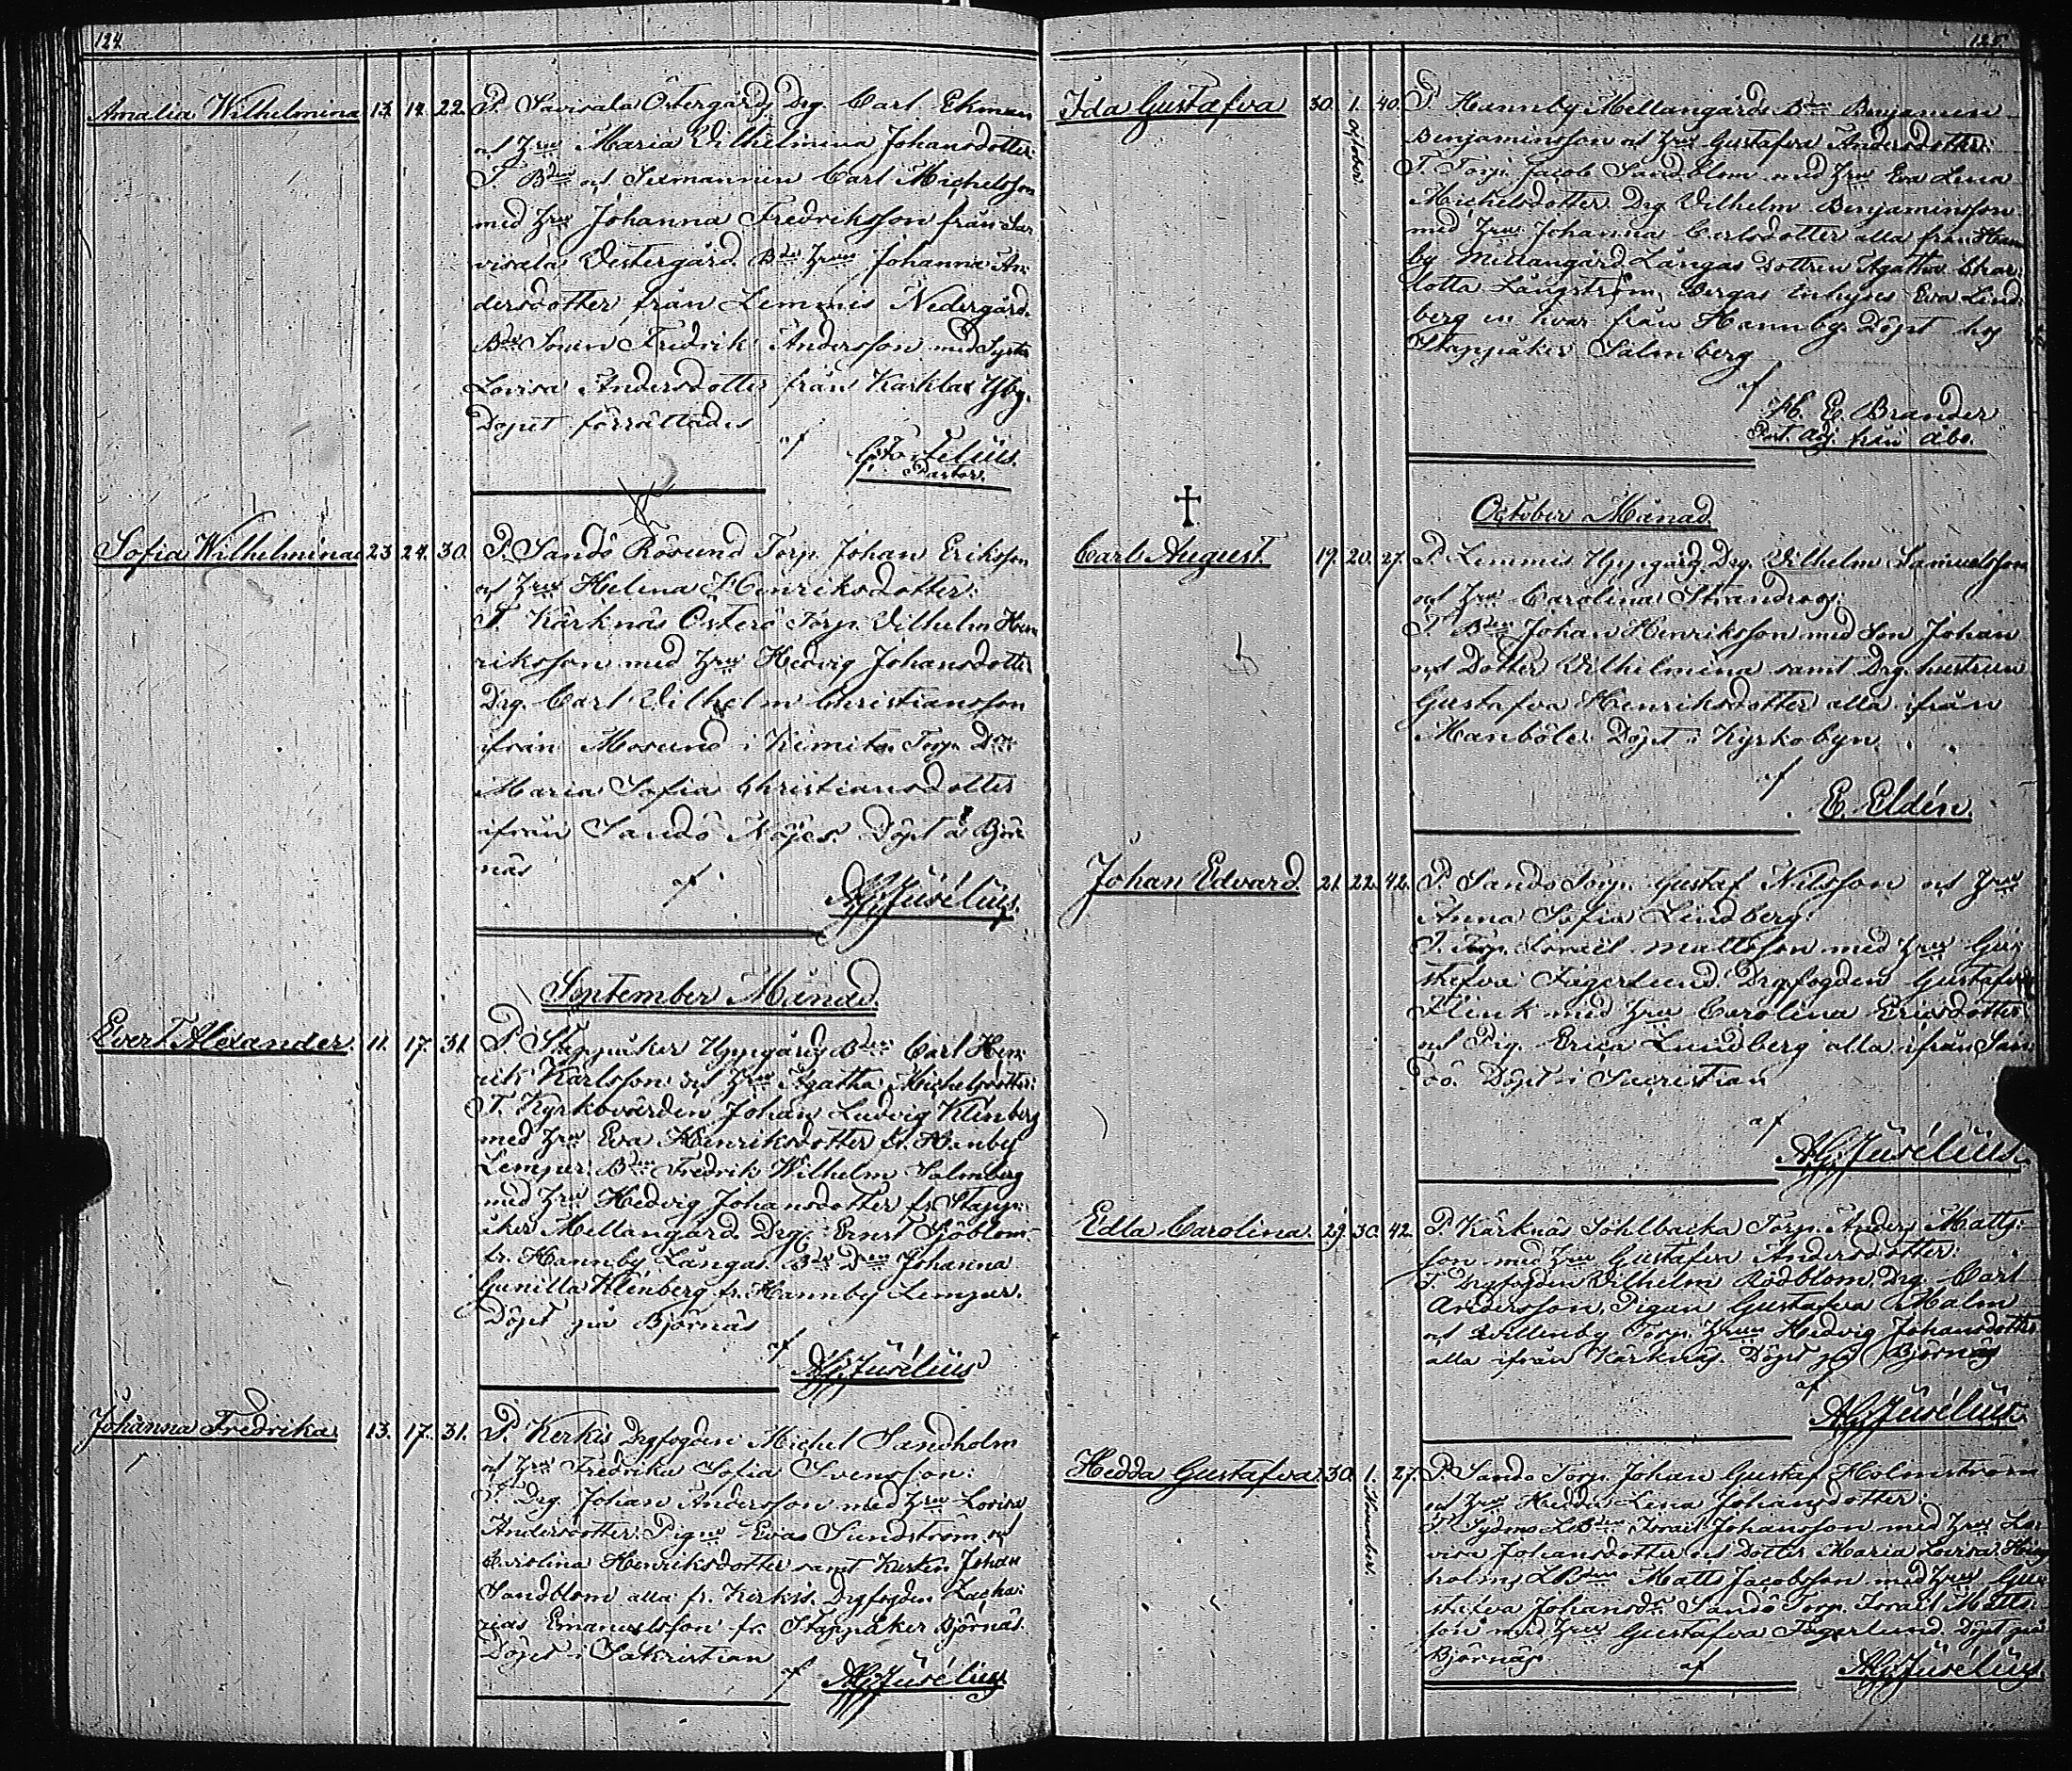 124
Amalia Wilhelmina 13. 14. 22. P. Savisala Östergårds Drg. Carl Ekman
och Hru Maria Vilhelmina Johansdotter
T. Bden och Sexmannen Carl Michelsson
med Hru Johanna Fredriksson från Sa
visala Westergård. Bde Hrun Johanna An
dersdotter från Lemnis Nedergård.
Bde Sonen Fredrik Andersson med Syster
Lovisa Andersdotter från Karklax Yby.
Dopet förrättades
af
Pastor.
Sofia Wilhelmina 23 24. 30. P. Sandö Rösund Torp. Johan Eriksson
och Hru Helena Henriksdotter:
T. Kärknäs Österö Torp. Vilhelm Hen
riksson med Hru Hedvig Johansdotter
Drg. Carl Vilhelm Christiansson
ifrån Mosund i Kimito Torp. Dn
Maria Sofia Christiansdotter
ifrån Sandö Nöjes. Döpt å Björ
näs
af
Jusélius
September Månad.
Evert Alexander. 11. 17. 31. P. Stappåker Uppgårds Bden Carl Hen
rik Karlsson och Hru Agatha Michelsdotter:
T. Kyrkovärden Johan Ludvig Klenberg
med Hru Eva Henriksdotter fr. Hanby
Lempur. Bden Fredrik Wilhelm Salmberg
med Hru Hedvig Johansdotter fr. Stapp
åker Mellangård. Drg. Ernst Sjöblom
fr. Hannby Långas. Bde Dn Johanna
Gunilla Klenberg fr. Hannby Lempur.
Döpt på Björnäs
af
Jusélius
Johanna Fredrika 13. 17. 31. P. Kerkis Drgfogden Michel Sandholm
och Hru Fredrika Sofia Svensson:
T. Drg. Johan Andersson med Hru Lovisa
Andersdotter. Pign Evas Sundström och
Carolina Henriksdotter samt Kusken Johan
Sandblom alla fr. Kerkis. Drgfogden Zacha
rias Emanuelsson fr. Stappåker Björnäs.
Döpt i Sakristian
af
Jusélius
125.
Ida Gustafva 30. 1. October. 40. P. Hannby Mellangårds Bden Benjamin
Benjaminsson och Hru Gustafva Andersdotter:
T. Torp. Jacob Sandblom med Hru Eva Lena
Michelsdotter Drg. Vilhelm Benjaminsson
med Hru Johanna Carlsdotter alla från Hann
by Mellangård. Långas Dottren Agatha Char
lotta Långström, Bergas Inhyses Eva Lind
berg en hvar från Hannby. Döpt hos
Stappåker Salmberg
af
H. E. Brander
Past. Adj. från Åbo.
October Månad
Carl August. 19. 20. 27. P. Lemnis Uppgård Drg. Vilhelm Samuelsson
och Hru Carolina Strandroos:
T. Bden Johan Henriksson med Son Johan
och Dotter Vilhelmina samt Drg. hustrun
Gustafva Henriksdotter alla ifrån
Manböle. Döpt i Kyrkobyn
af
E. Eldén.
Johan Edvard. 21. 22. 42. P. Sandö Torp. Gustaf Nilsson och Hru
Anna Sofia Lindberg:
T. Torp. Israel Mattsson med Hru Gu
stafva Fagerlund. Drgfogden Gustaf
Flink med Hru Carolina Ericsdotter
och Pig. Erica Lundberg alla ifrån San
dö. Döpt i Sacristian
af
Jusélius
Edla Carolina. 29. 30. 42. P. Kärknäs Sohlbacka Torp. Anders Matts
son med Hru Gustafva Andersdotter:
T. Drgfogden Vilhelm Rodblom, Drg. Carl
Andersson, Pigan Gustafva Malm
och Torp. Hrun Hedvig Johansdotter
alla ifrån Kärknäs. Döpt på Björnäs
af
Jusélius
Hedda Gustafva 30. 1. November. 27. P. Sandö Torp. Johan Gustaf Holmström
och Hru Hedda Lena Johansdotter:
T. Sydmo LBden Israel Johansson med Hru Lo
visa Johansdotter och Dotter Maria Lovisa
holms LBden Matts Jacobsson med Hru Gu
stafva Johansdr Sandö Torp. Israel Matts
son med Hru Gustafva Fagerlund. Döpt på
Björnäs
af
Jusélius